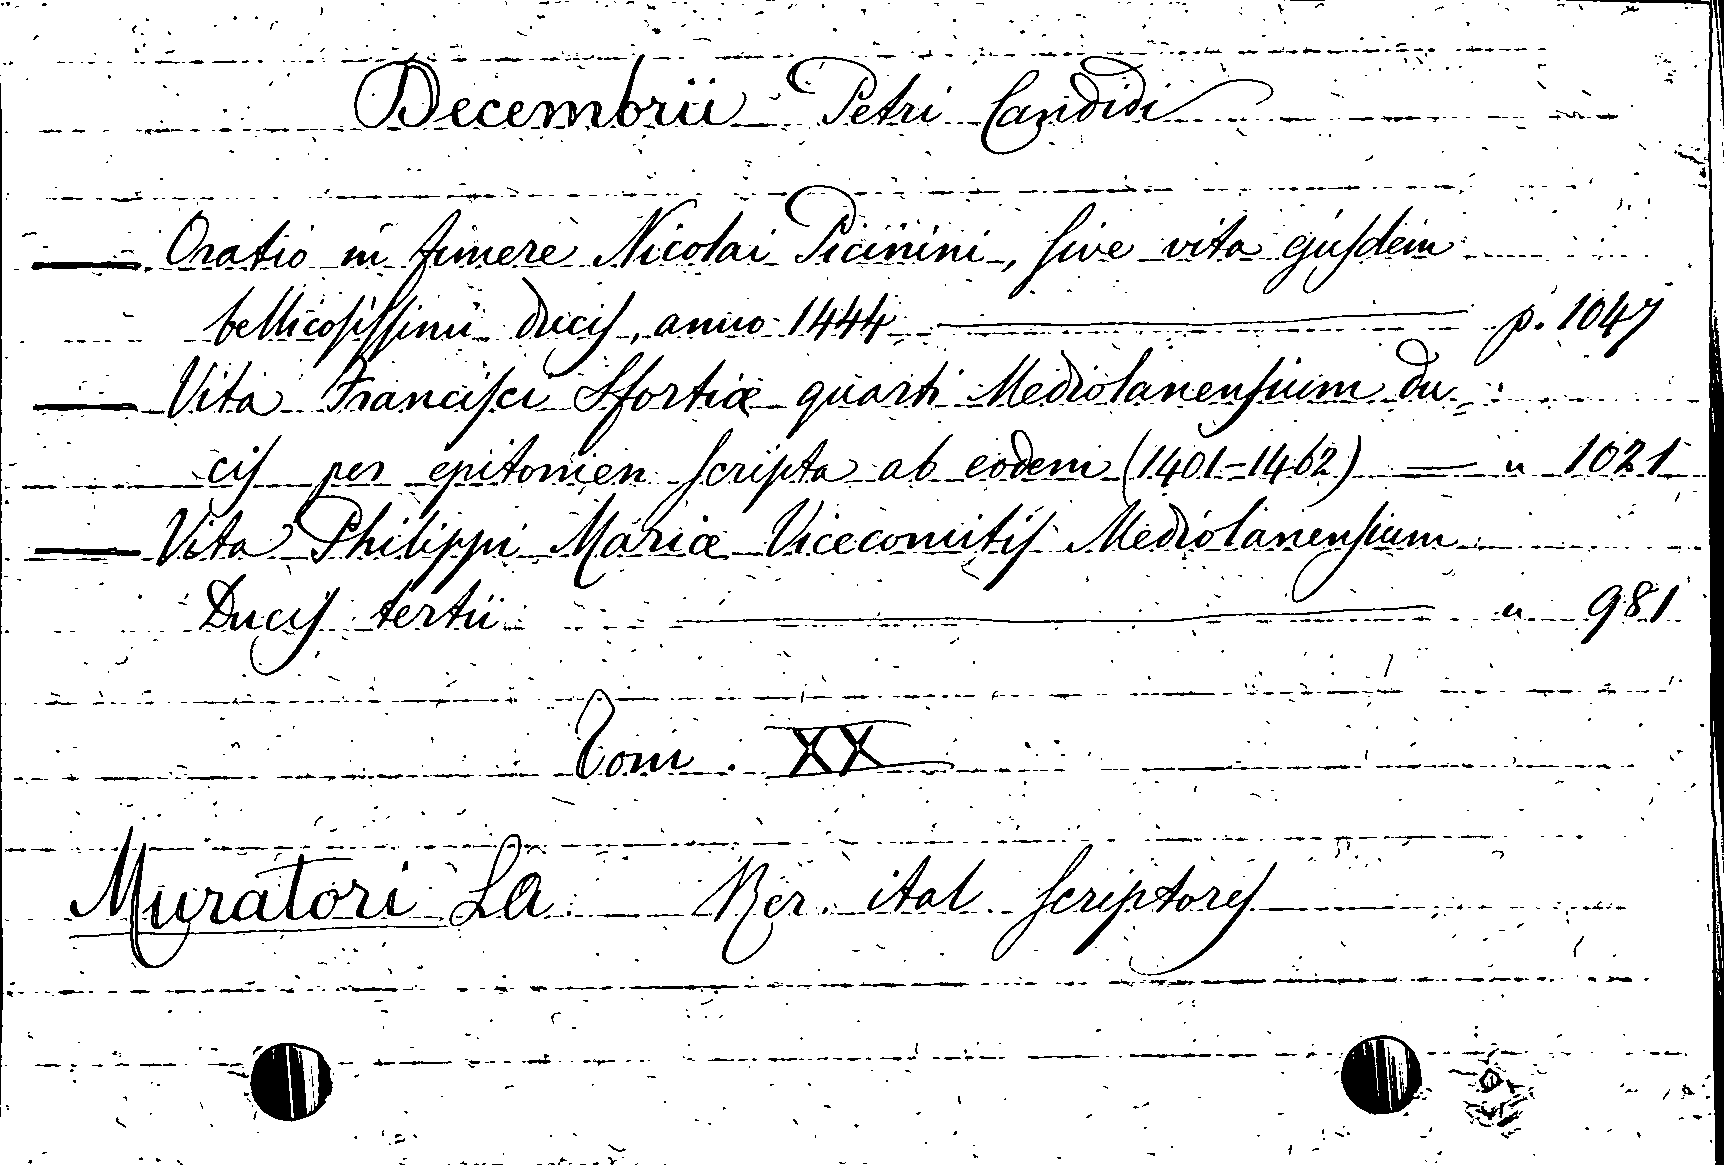 Decembrii Petri Candidi
— Oratio in funere Nicolai Picinini, sive vita ejusdem
bellicosissimi ducis, anno 1444 — p. 1047
— Vita Francisci Sfortiæ quarti Mediolanensium du-
cis per epitomen scripta ab eodem (1401-1462) — " 1021
— Vita Philippi Mariæ Vicecomitis Mediolanensium
Ducis tertii — " 981
Tom. XX
Muratori LA Rer. ital. scriptores